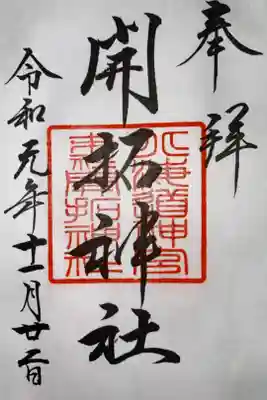 奉拝
開拓神社
北海道神宮末社開拓神社
令和元年十一月廿二日